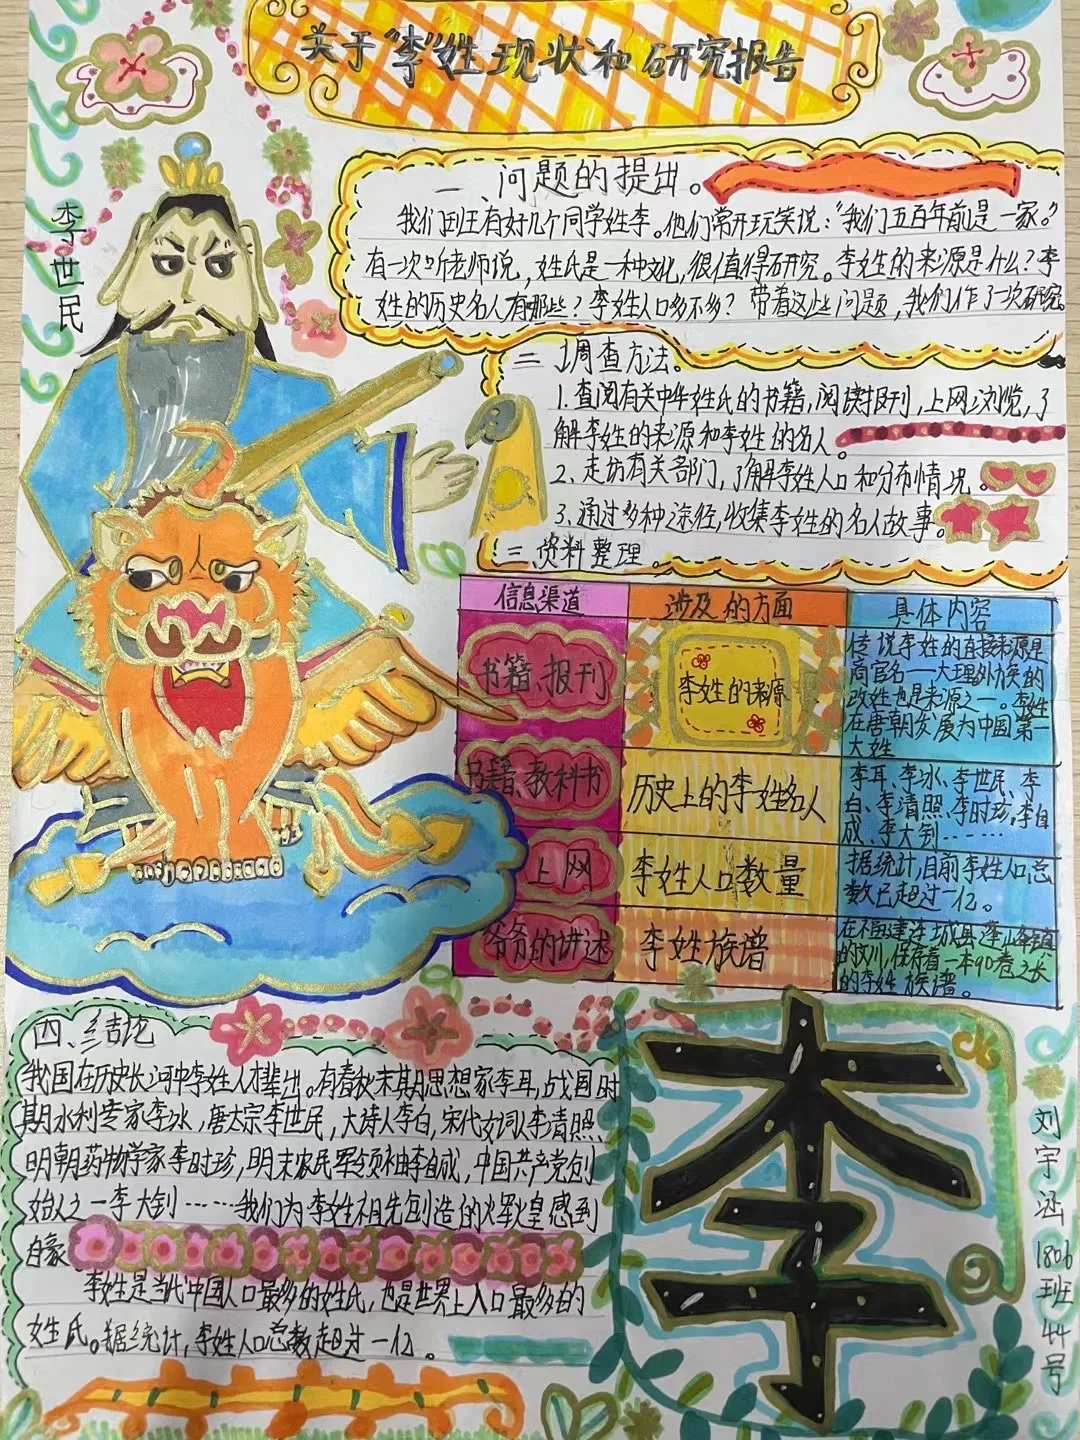 关于“李”姓现状和研究报告
李世民
一、问题的提出。
我们班有好几个同学姓李。他们常开玩笑说：“我们五百年前是一家。”
有一次听老师说，姓氏是一种文化，很值得研究。李姓的来源是什么？李
姓的历史名人有哪些？李姓人口多不多？带着这些问题，我们作了一次研究。
二、调查方法。
1.查阅有关中华姓氏的书籍，阅读报刊，上网浏览，了
解李姓的来源和李姓的名人。
2、走访有关部门，了解李姓人口和分布情况。
3、通过多种途径，收集李姓的名人故事。
三、资料整理。
信息渠道 涉及的方面 具体内容
书籍、报刊
李姓的来源
传说李姓的直接来源是
商官名——大理外族的
改姓也是来源之一。李姓
在唐朝发展为中国第一
大姓
书籍、教科书
历史上的李姓名人
李耳、李冰、李世民、李
白、李清照、李时珍、李自
成、李大钊……
上网
李姓人口数量
据统计，目前李姓人口总
数已超过一亿。
爷爷的讲述
李姓族谱
在福建连城县
的文川，保存着一本90卷之长
的李姓族谱。
四、结论
我国在历史长河中李姓人才辈出。有春秋末期思想家李耳，战国时
期水利专家李冰，唐太宗李世民，大诗人李白，宋代女词人李清照、
明朝药物学家李时珍，明末农民军领袖李自成，中国共产党创
始人之一李大钊……我们为李姓祖先创造的辉煌感到
自豪
李姓是当代中国人口最多的姓氏，也是世界上人口最多的
姓氏。据统计，李姓人口总数超过一亿。
李
刘宇涵 1806班44号